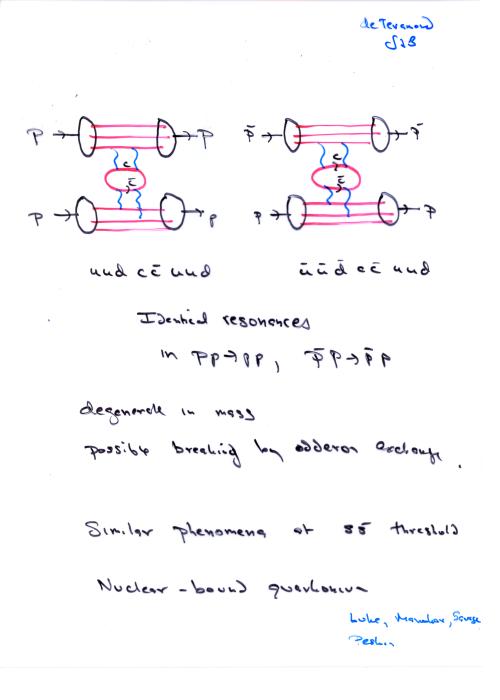 de Teramond
SJB
P P P̄ P̄
c c
c̄ c̄
P p P P
uud c c̄ uud ū ū d̄ c c̄ uud
Identical resonances
in pp→pp, p̄p→p̄p
degenerate in mass
possible breaking by odderon exchange.
Similar phenomena at s s̄ threshold
Nuclear-bound quarkonium
Luke, Manohar, Savage
Peskin